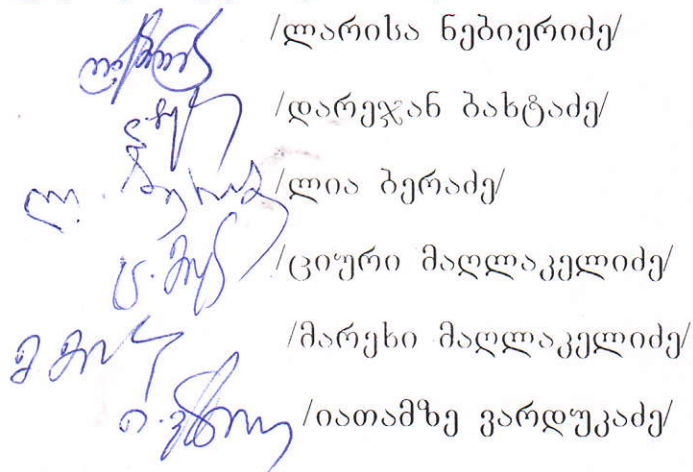 /ლარისა ნებიერიძე/
/დარეჯან ბახტაძე/
/ლია ბერაძე/
/ციური მაღლაკელიძე/
/მარეხი მაღლაკელიძე/
/იათამზე ვარდუკაძე/